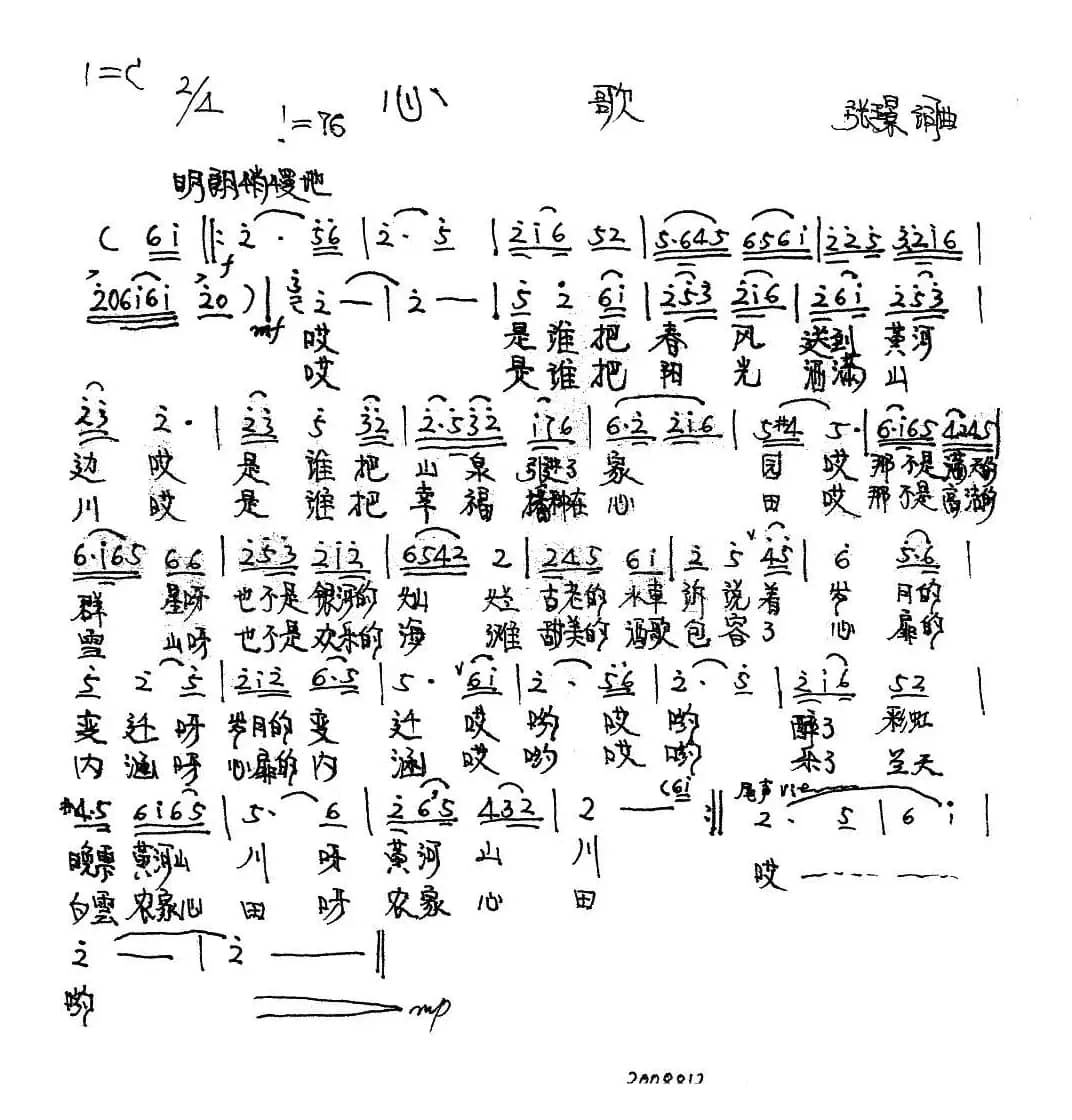 1=C 2/4 ♩=76 心 歌 张璟 词曲
明朗稍慢地
( 6 i ‖: 2 · 5 6 | 2 · 5 | 2 i 6 5 2 | 5 · 6 4 5 6 5 6 i | 2 2 5 3 2 i 6 |
f
2 0 6 i 6 i 2 0 ) | 3 2 — | 2 — | 5 2 6 i | 2 5 3 2 i 6 | 2 6 i 2 5 3 |
mf
哎 是 谁 把 春 风 送到 黄河
哎 是 谁 把 阳 光 洒满 山
2 3 2 · | 2 3 5 3 2 | 2 · 5 3 2 i 7 6 | 6 · 2 2 i 6 | 5 #4 5 · | 6 · i 6 5 4 2 4 5 |
边 哎 是 谁 把 山 泉 引进了 家 园 哎 那 不是 满天的
川 哎 是 谁 把 幸 福 播种在 心 田 哎 那 不是
6 · i 6 5 6 6 | 2 5 3 2 i 2 | 6 5 4 2 2 | 2 4 5 6 i | 2 5 4 5 | 6 5 · 6 |
群 星呀 也不是 银河的 灿 烂 古老的 水車 訴 说 着 岁 月的
雪 山呀 也不是 欢乐的 海 滩 甜美的 酒歌 包 容 了 心 扉的
5 2 5 | 2 i 2 6 · 5 | 5 · 6 i | 2 · 5 6 | 2 · 5 | 2 i 6 5 2 |
变 迁 呀 岁月的 变 迁 哎 哟 哎 哟 醉了 彩虹
内 涵 呀 心扉的 内 涵 哎 哟 哎 哟 乐了 兰天
#4 · 5 6 i 6 5 | 5 · 6 | 2 6 5 4 3 2 | 2 — ( 6 i :‖ 尾声 2 · 5 | 6 i |
晚霞 黄河山 川 呀 黄河 山 川
哎
白雲 农家心 田 呀 农家 心 田
2 — | 2 — ‖
哟 mp